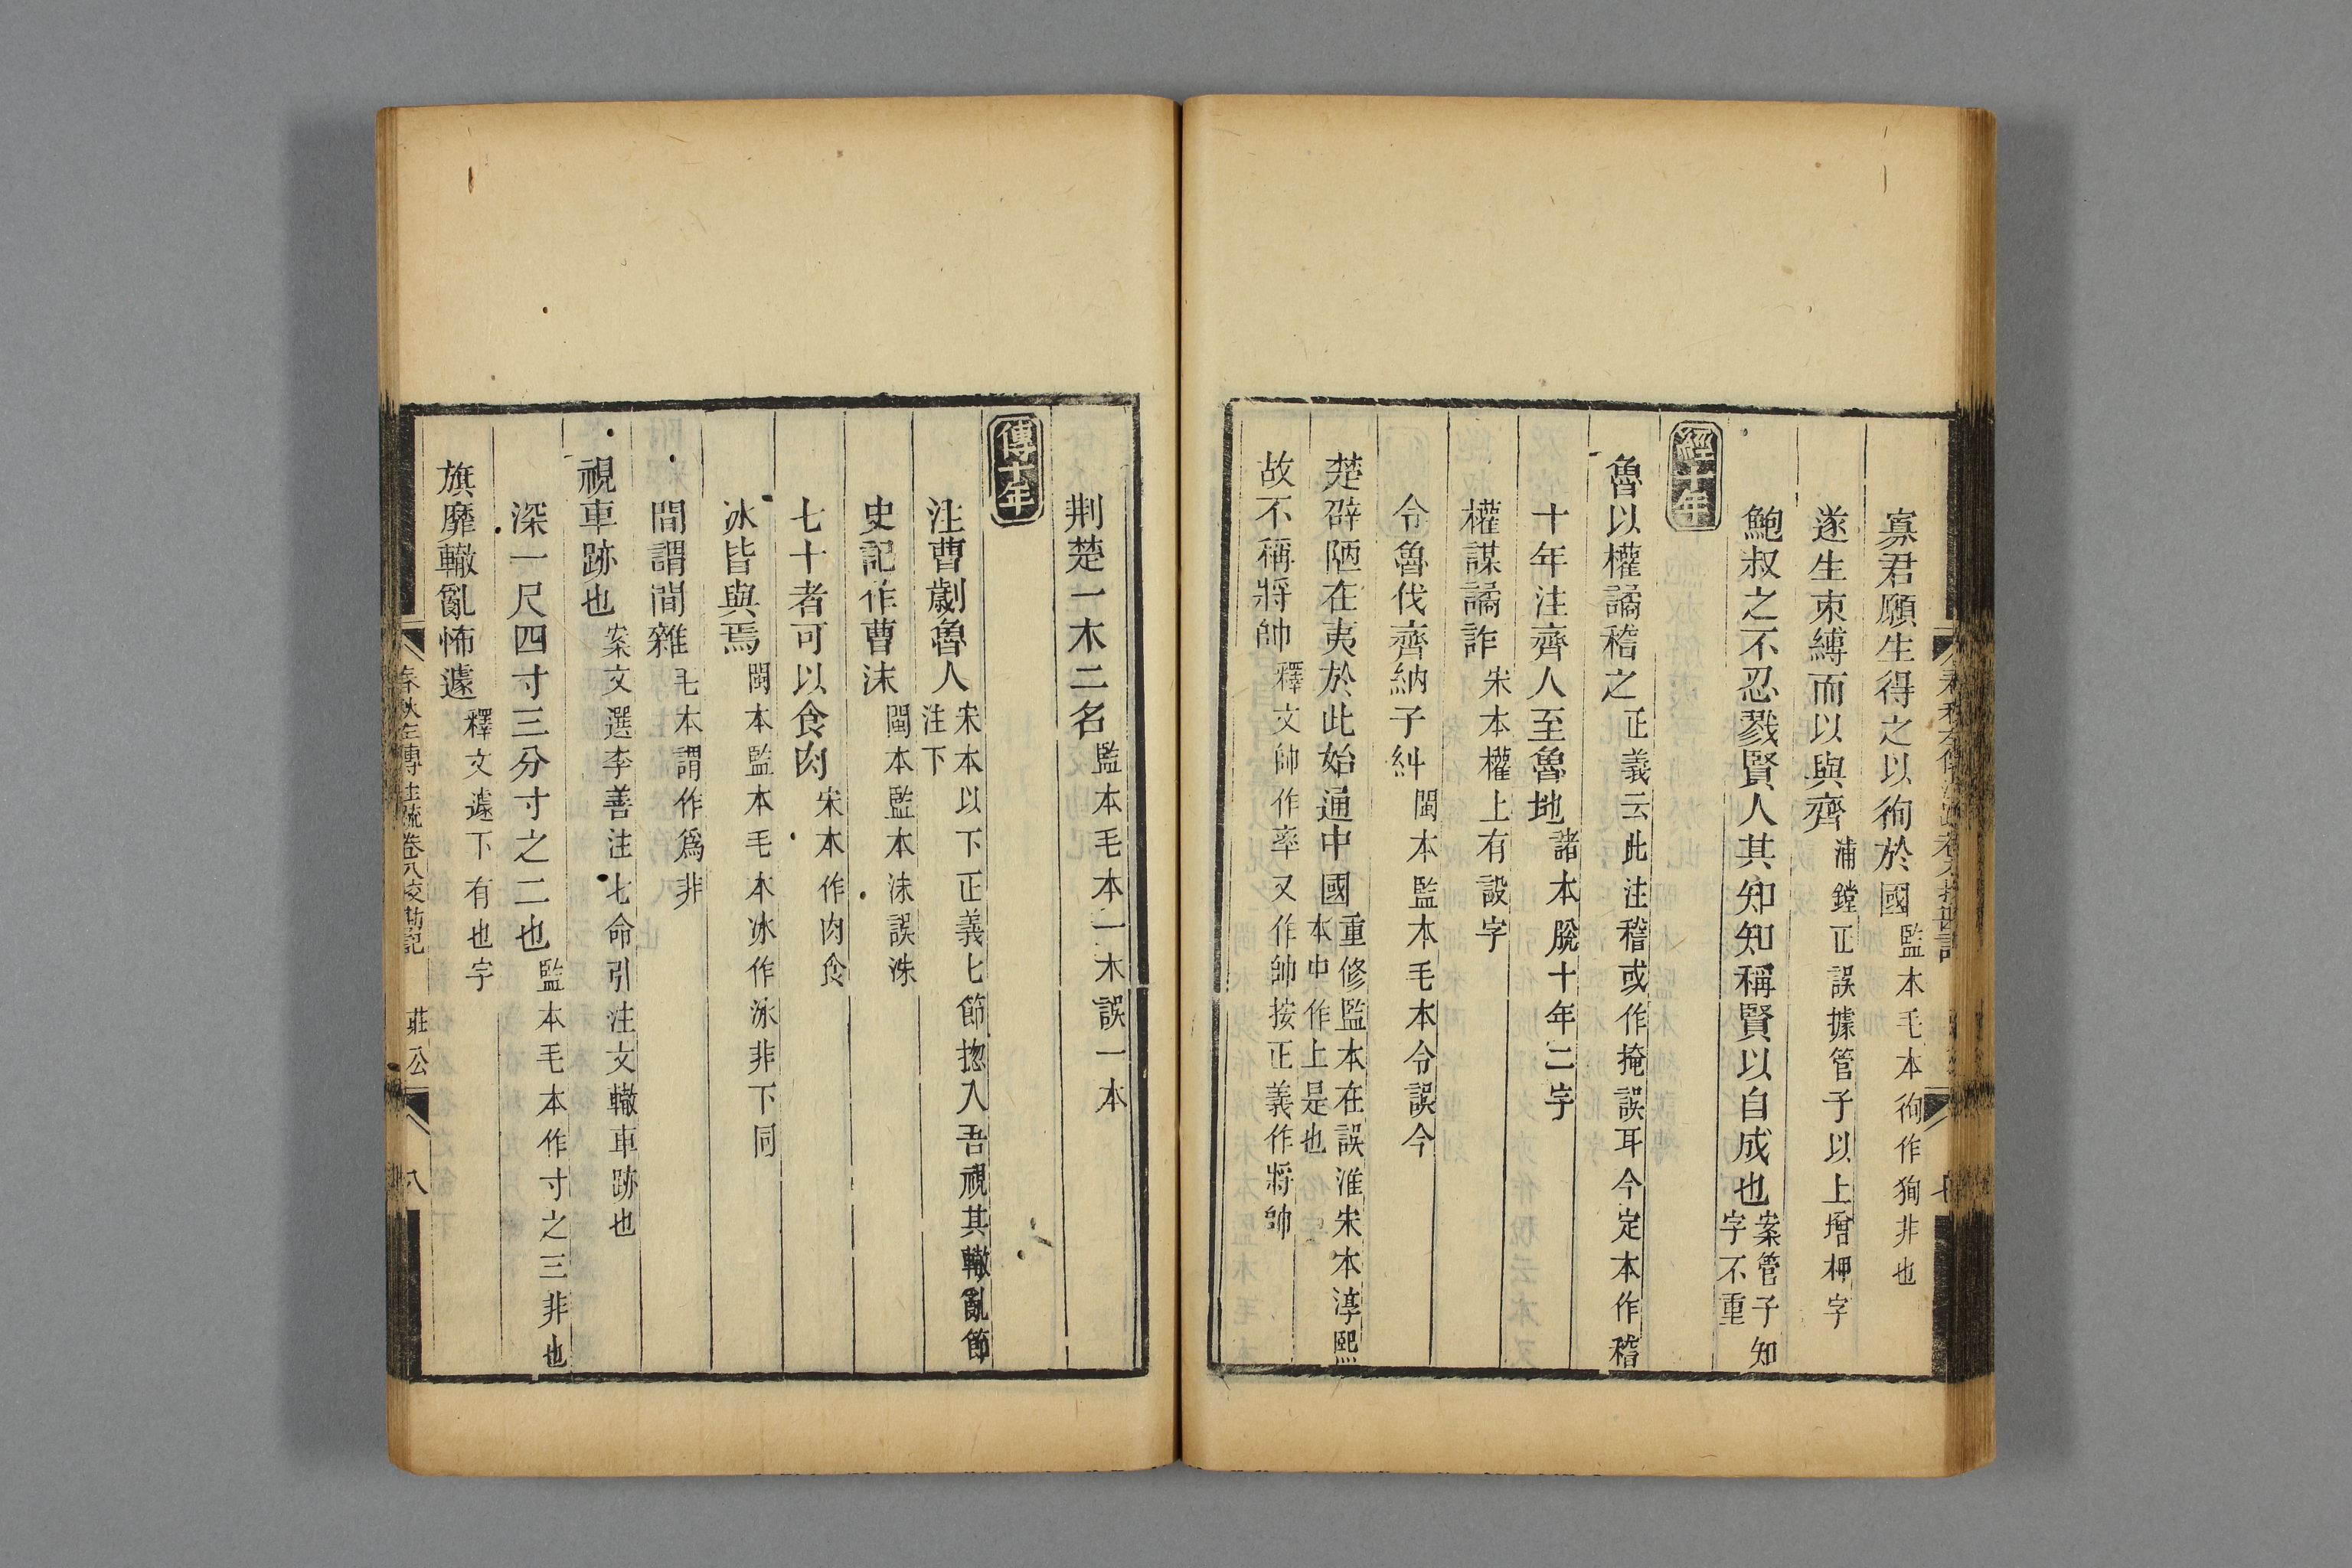 寡君願生得之以徇於國監本毛本徇作狥非也
遂生束縛而以與齊浦鏜正誤據管子以上增柙字
鮑叔之不忍戮賢人其知知稱賢以自成也案管子知字不重
經十年
魯以權譎稽之正義云此注稽或作掩誤耳今定本作稽
十年注齊人至魯地諸本脫十年二字
權謀譎詐宋本權上有設字
令魯伐齊納子糾閩本監本毛本令誤今
楚辟陋在夷於此始通中國重修監本在誤淮宋本淳熙本中作上是也
故不稱將帥釋文帥作率又作帥按正義作將帥
荆楚一木二名監本毛本一木誤一本
傳十年
注曹劌魯人宋本以下正義七節揔入吾視其轍亂節注下
史記作曹沫閩本監本沫誤洙
七十者可以食肉宋本作肉食
冰皆與焉閩本監本毛本冰作泳非下同
間謂間雜毛本謂作爲非
視車跡也案文選李善注七命引注文轍車跡也
深一尺四寸三分寸之二也監本毛本作寸之三非也
旗靡轍亂怖遽釋文遽下有也字
春秋左傳注疏卷八校勘記 莊公 八